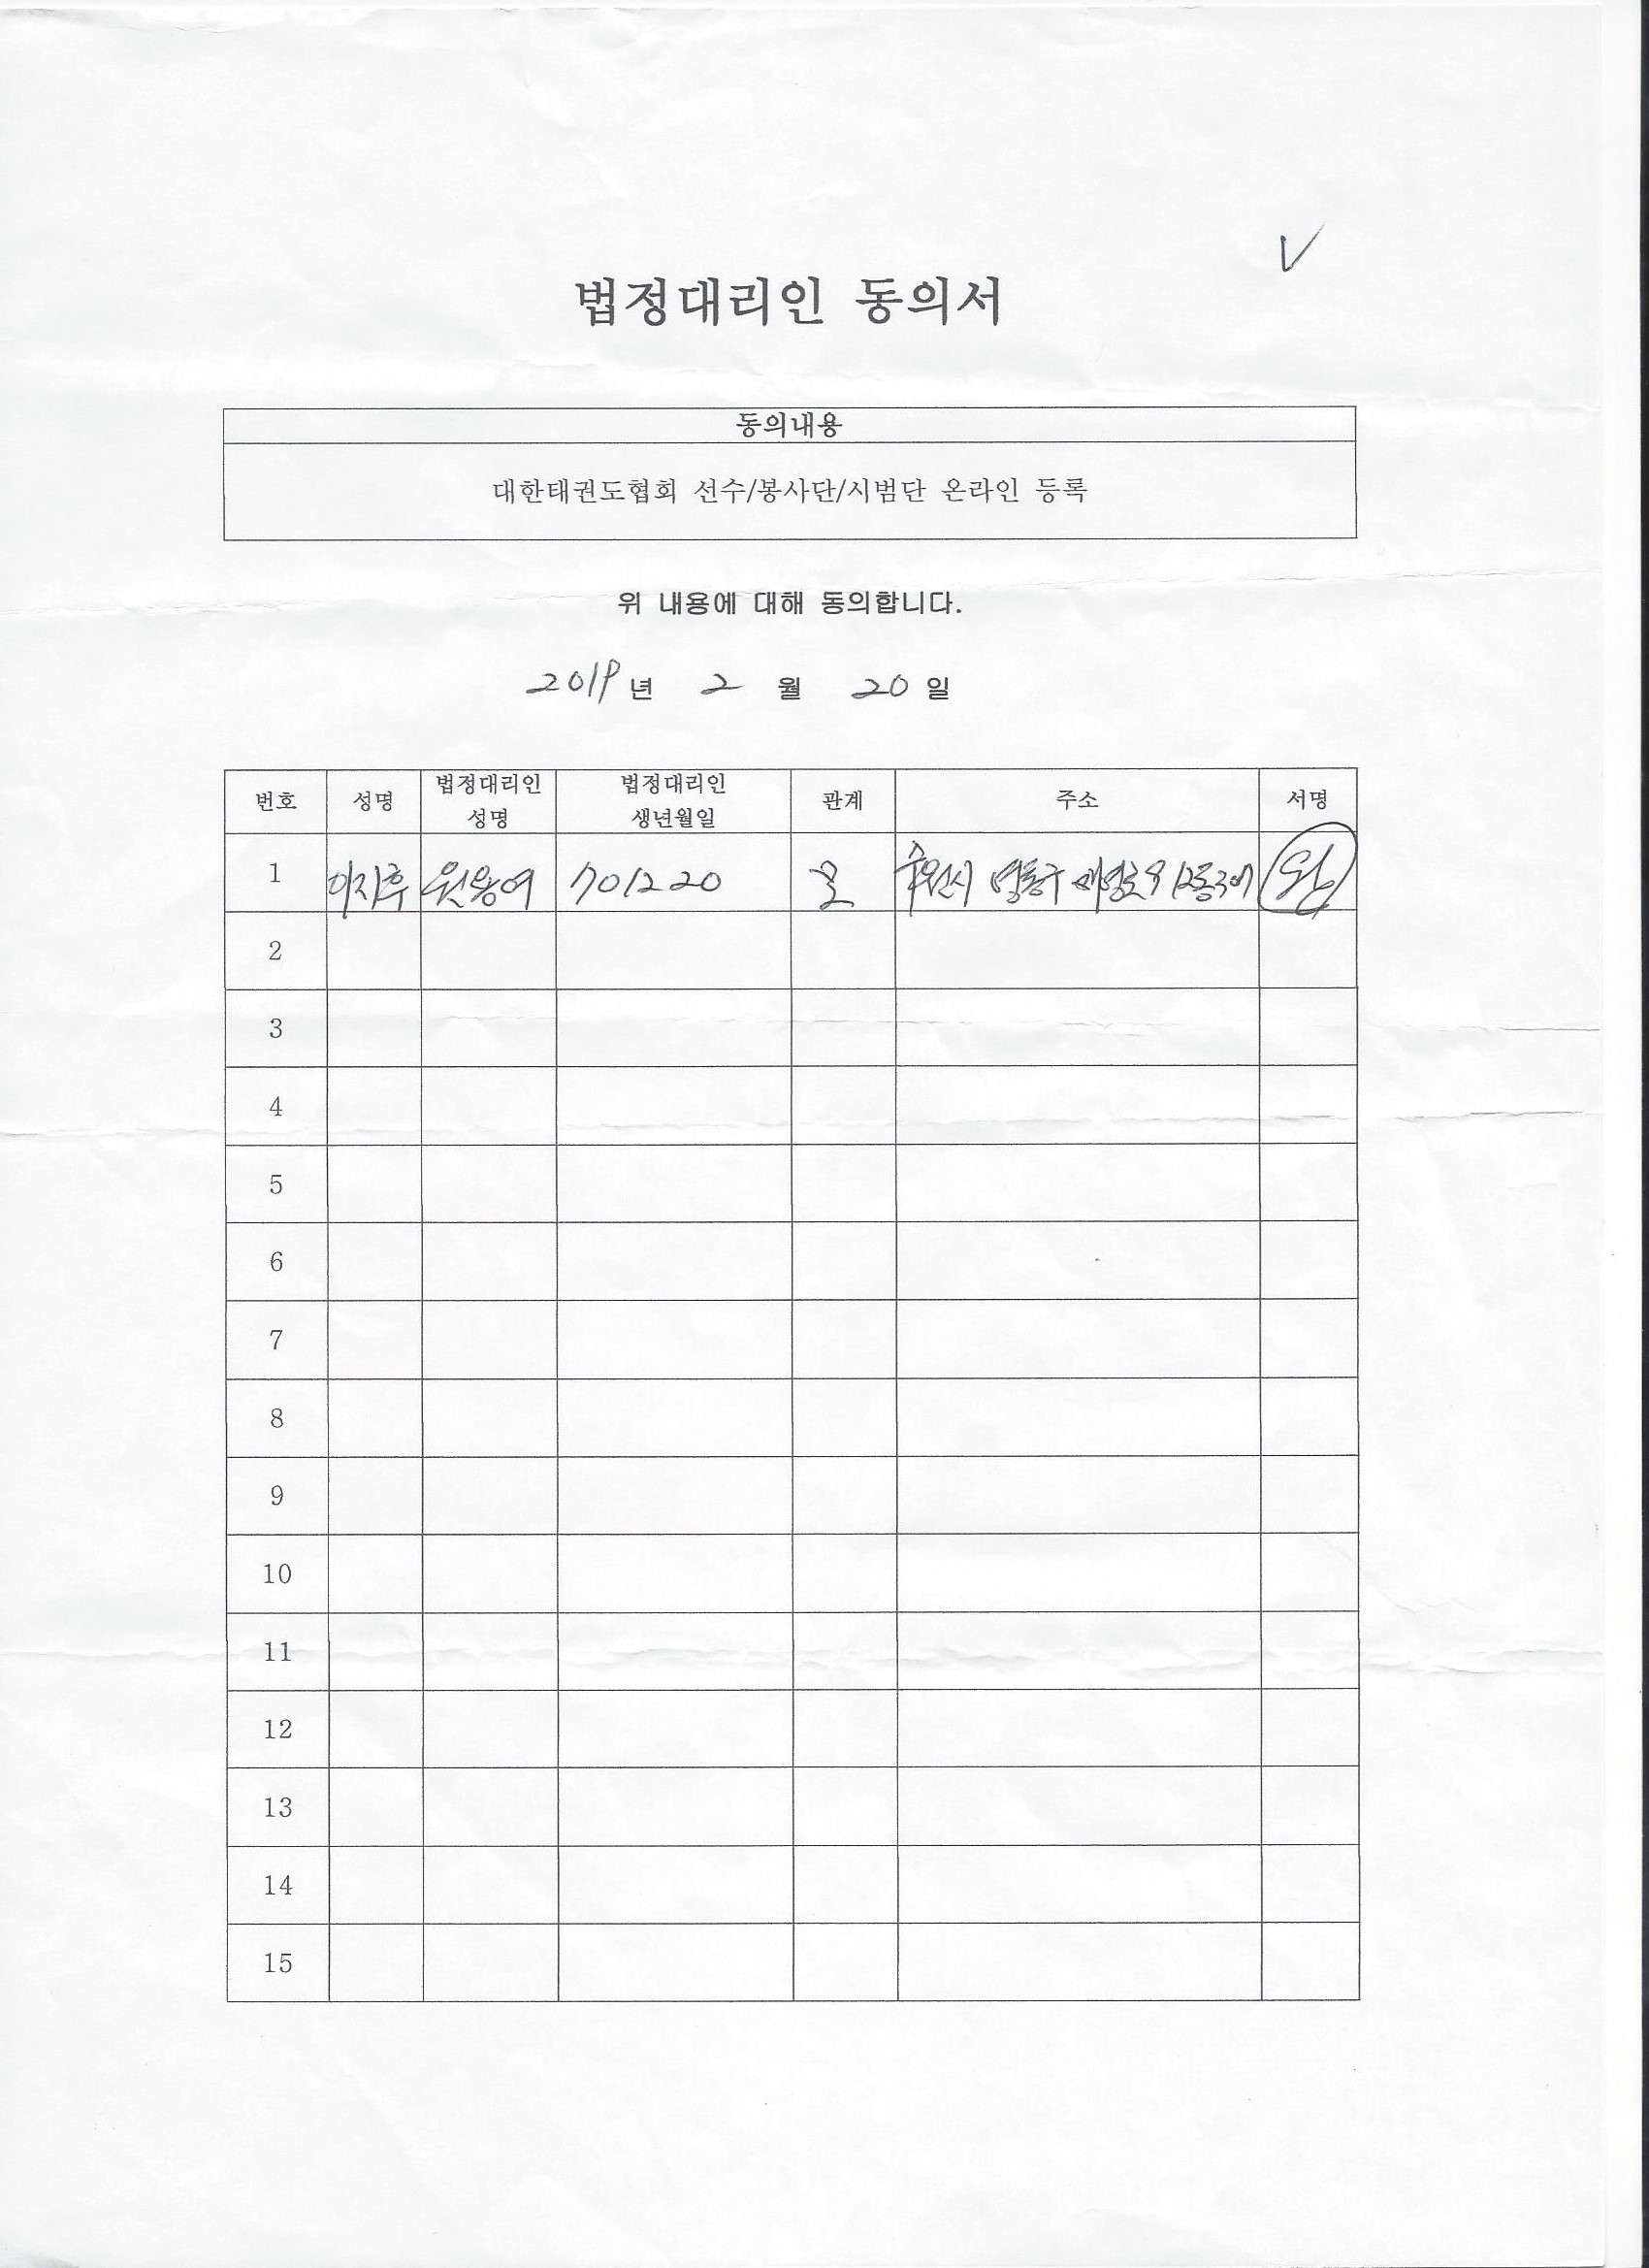 법정대리인 동의서
동의내용
대한태권도협회 선수/봉사단/시범단 온라인 등록
위 내용에 대해 동의합니다.
2019년 2 월 20 일
번호 성명 법정대리인 성명 법정대리인 생년월일 관계 주소 서명
1 이지후 원용여 701220 모 수원시 영통구
2
3
4
5
6
7
8
9
10
11
12
13
14
15